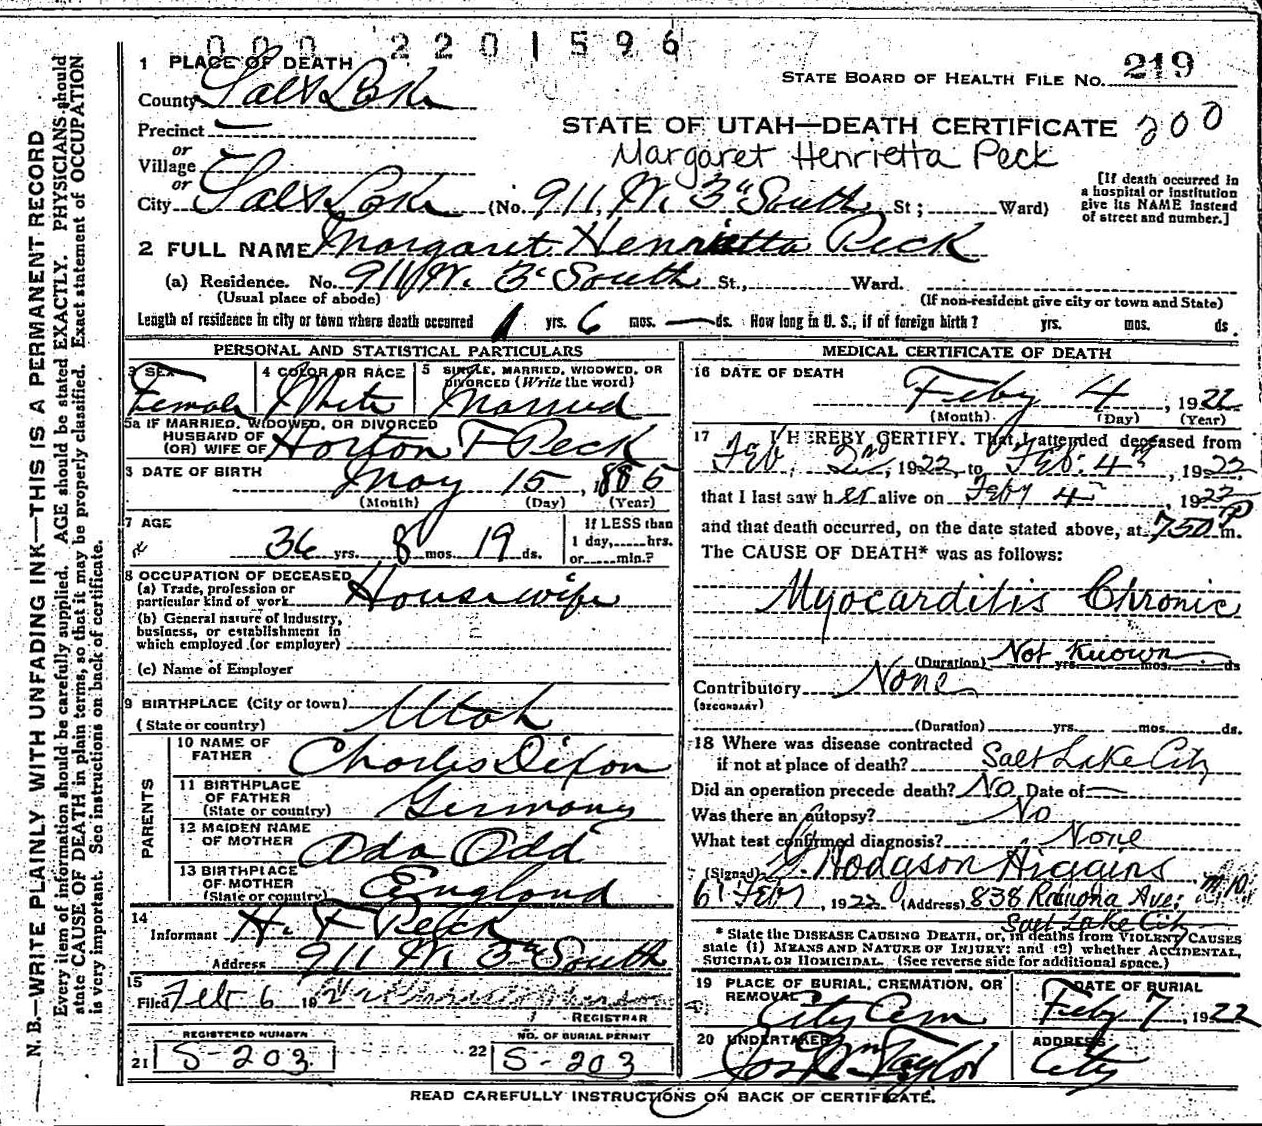 000 2201596
1 PLACE OF DEATH
STATE BOARD OF HEALTH FILE No. 219
County Salt Lake
Precinct —
STATE OF UTAH—DEATH CERTIFICATE 200
or
Village
Margaret Henrietta Peck
or
City Salt Lake (No. 911, W. 3d South St; Ward)
[If death occurred in
a hospital or institution
give its NAME instead
of street and number.]
2 FULL NAME Margaret Henrietta Peck
(a) Residence. No. 911 W. 3d South St., Ward.
(Usual place of abode) (If non-resident give city or town and State)
Length of residence in city or town where death occurred 1 yrs. 6 mos. — ds. How long in U. S., if of foreign birth? yrs. mos. ds.
PERSONAL AND STATISTICAL PARTICULARS
3 SEX Female
4 COLOR OR RACE White
5 SINGLE, MARRIED, WIDOWED, OR
DIVORCED (Write the word)
Married
5a IF MARRIED, WIDOWED, OR DIVORCED
HUSBAND OF
(OR) WIFE OF Horton F Peck
DATE OF BIRTH May 15, 1885
(Month) (Day) (Year)
7 AGE
36 yrs. 8 mos. 19 ds.
If LESS than
1 day, hrs.
or min.?
8 OCCUPATION OF DECEASED
(a) Trade, profession or
particular kind of work Housewife
(b) General nature of industry,
business, or establishment in
which employed (or employer)
(c) Name of Employer
9 BIRTHPLACE (City or town)
(State or country) Utah
PARENTS
10 NAME OF
FATHER Charles Dixon
11 BIRTHPLACE
OF FATHER
(State or country) Germany
12 MAIDEN NAME
OF MOTHER Ada Odd
13 BIRTHPLACE
OF MOTHER
(State or country) England
14
Informant H. F Peck
Address 911 W 3d South
15
Filed Feb 6 19
REGISTRAR
REGISTERED NUMBER
21 S-203
NO. OF BURIAL PERMIT
22 S-203
MEDICAL CERTIFICATE OF DEATH
16 DATE OF DEATH
Feby 4, 1922
(Month) (Day) (Year)
17 I HEREBY CERTIFY, That I attended deceased from
Feb. 2nd, 1922, to Feb. 4th, 1922
that I last saw her alive on Feby 4th, 1922
and that death occurred, on the date stated above, at 750 P m.
The CAUSE OF DEATH* was as follows:
Myocarditis Chronic
(Duration) Not Known yrs. mos. ds
Contributory None
(SECONDARY)
(Duration) yrs. mos. ds.
18 Where was disease contracted
if not at place of death? Salt Lake City
Did an operation precede death? No Date of —
Was there an autopsy? No
What test confirmed diagnosis? None
(Signed) G. Hodgson Higgins M.D.
6th Feby, 1922 (Address) 838 Ave;
Salt Lake City
* State the DISEASE CAUSING DEATH, or, in deaths from VIOLENT CAUSES
state (1) MEANS AND NATURE OF INJURY; and (2) whether ACCIDENTAL,
SUICIDAL OR HOMICIDAL. (See reverse side for additional space.)
19 PLACE OF BURIAL, CREMATION, OR
REMOVAL
City Cem
DATE OF BURIAL
Feby 7, 1922
20 UNDERTAKER
Jos Wm Taylor
ADDRESS
City
READ CAREFULLY INSTRUCTIONS ON BACK OF CERTIFICATE.
N. B.—WRITE PLAINLY WITH UNFADING INK—THIS IS A PERMANENT RECORD
Every item of information should be carefully supplied. AGE should be stated EXACTLY. PHYSICIANS should
state CAUSE OF DEATH in plain terms, so that it may be properly classified. Exact statement of OCCUPATION
is very important. See instructions on back of certificate.